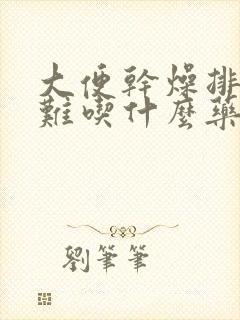 大便幹燥排
難喫什麼藥
劉筆筆